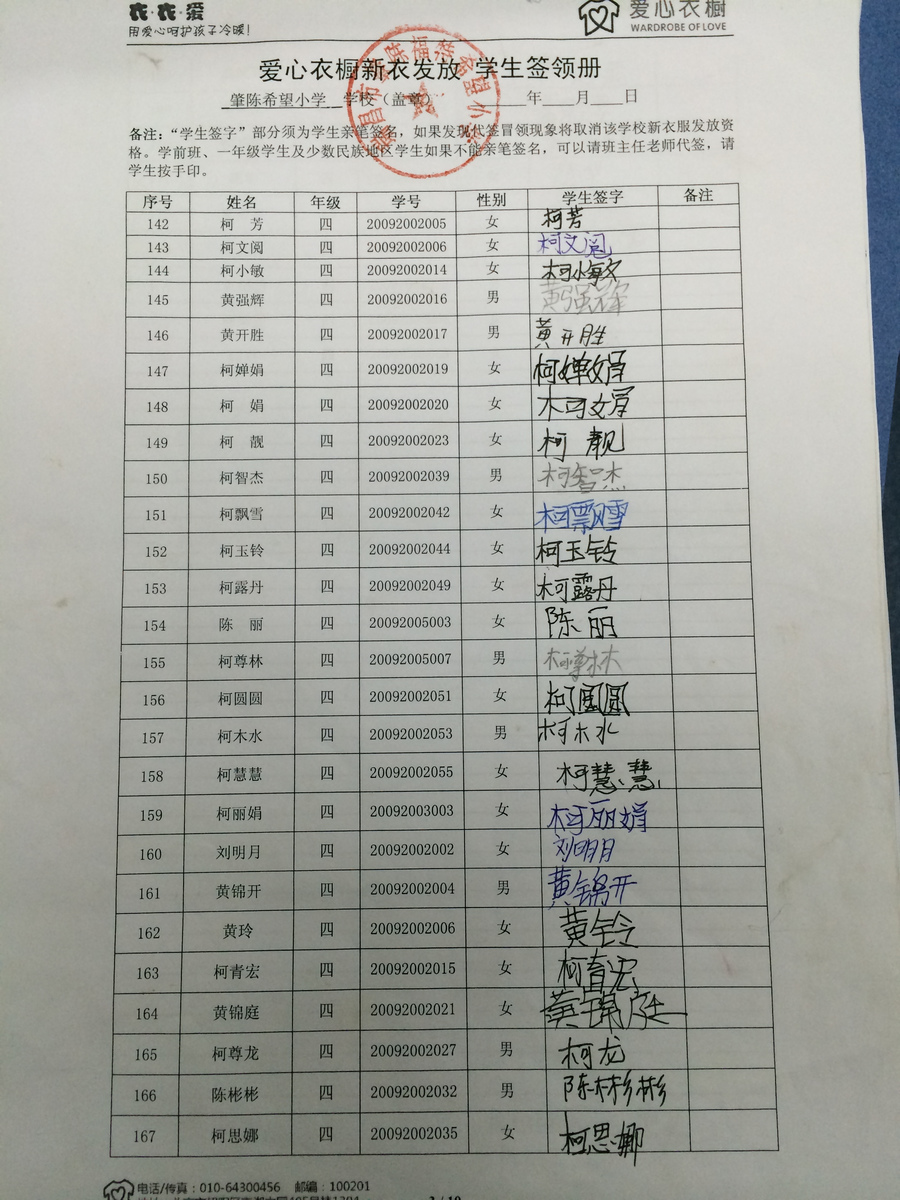 衣·衣·爱
用爱心呵护孩子冷暖!
爱心衣橱
WARDROBE OF LOVE
爱心衣橱新衣发放 学生签领册
肇陈希望小学 学校(盖章) ____年____月____日
备注:“学生签字”部分须为学生亲笔签名,如果发现代签冒领现象将取消该学校新衣服发放资
格。学前班、一年级学生及少数民族地区学生如果不能亲笔签名,可以请班主任老师代签,请
学生按手印。
序号 姓名 年级 学号 性别 学生签字 备注
142 柯 芳 四 20092002005 女 柯芳
143 柯文阅 四 20092002006 女 柯文阅
144 柯小敏 四 20092002014 女 柯小敏
145 黄强辉 四 20092002016 男 黄强
146 黄开胜 四 20092002017 男 黄开胜
147 柯婵娟 四 20092002019 女 柯婵娟
148 柯 娟 四 20092002020 女 柯娟
149 柯 靓 四 20092002023 女 柯靓
150 柯智杰 四 20092002039 男 柯智杰
151 柯飘雪 四 20092002042 女 柯飘雪
152 柯玉铃 四 20092002044 女 柯玉铃
153 柯露丹 四 20092002049 女 柯露丹
154 陈 丽 四 20092005003 女 陈丽
155 柯尊林 四 20092005007 男 柯尊林
156 柯圆圆 四 20092002051 女 柯圆圆
157 柯木水 四 20092002053 男 柯木水
158 柯慧慧 四 20092002055 女 柯慧慧
159 柯丽娟 四 20092003003 女 柯丽娟
160 刘明月 四 20092002002 女 刘明月
161 黄锦开 四 20092002004 男 黄锦开
162 黄玲 四 20092002006 女 黄铃
163 柯青宏 四 20092002015 女 柯青宏
164 黄锦庭 四 20092002021 女 黄锦庭
165 柯尊龙 四 20092002027 男 柯龙
166 陈彬彬 四 20092002032 男 陈彬彬
167 柯思娜 四 20092002035 女 柯思娜
电话/传真:010-64300456 邮编:100201